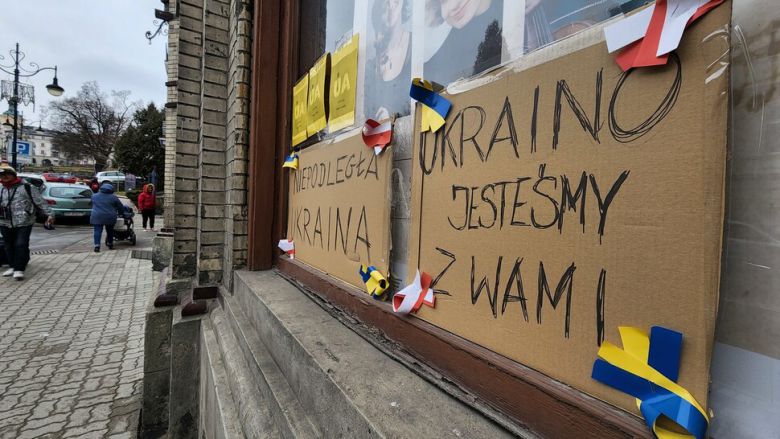 UA
UA
UA
NIEPODLEGŁA
UKRAINA
UKRAINO
JESTEŚMY
Z WAMI
P